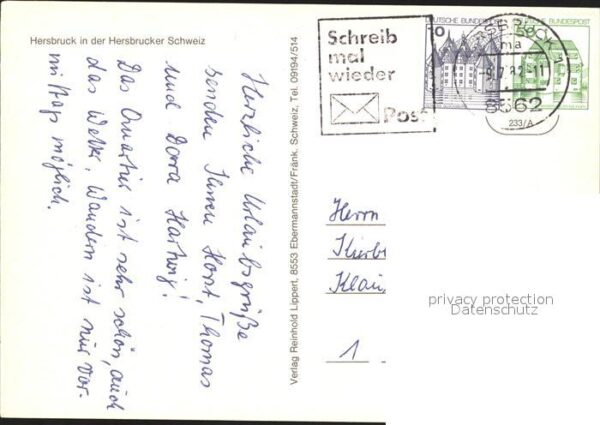 Hersbruck in der Hersbrucker Schweiz
Herzliche Urlaubsgrüße
senden Ihnen Horst, Thomas
und Dora Hartwig!
Das Quartier ist sehr schön, auch
das Wetter. Wandern ist nur vor-
mittags möglich.
Verlag Reinhold Lippert, 8553 Ebermannstadt/Fränk. Schweiz, Tel. 09194/514
Schreib
mal
wieder
Post
DEUTSCHE BUNDESPOST
10
50
HERSBRUCK 1
ma
-9.7.82-11
8562
233/A
Herrn
1
privacy protection
Datenschutz